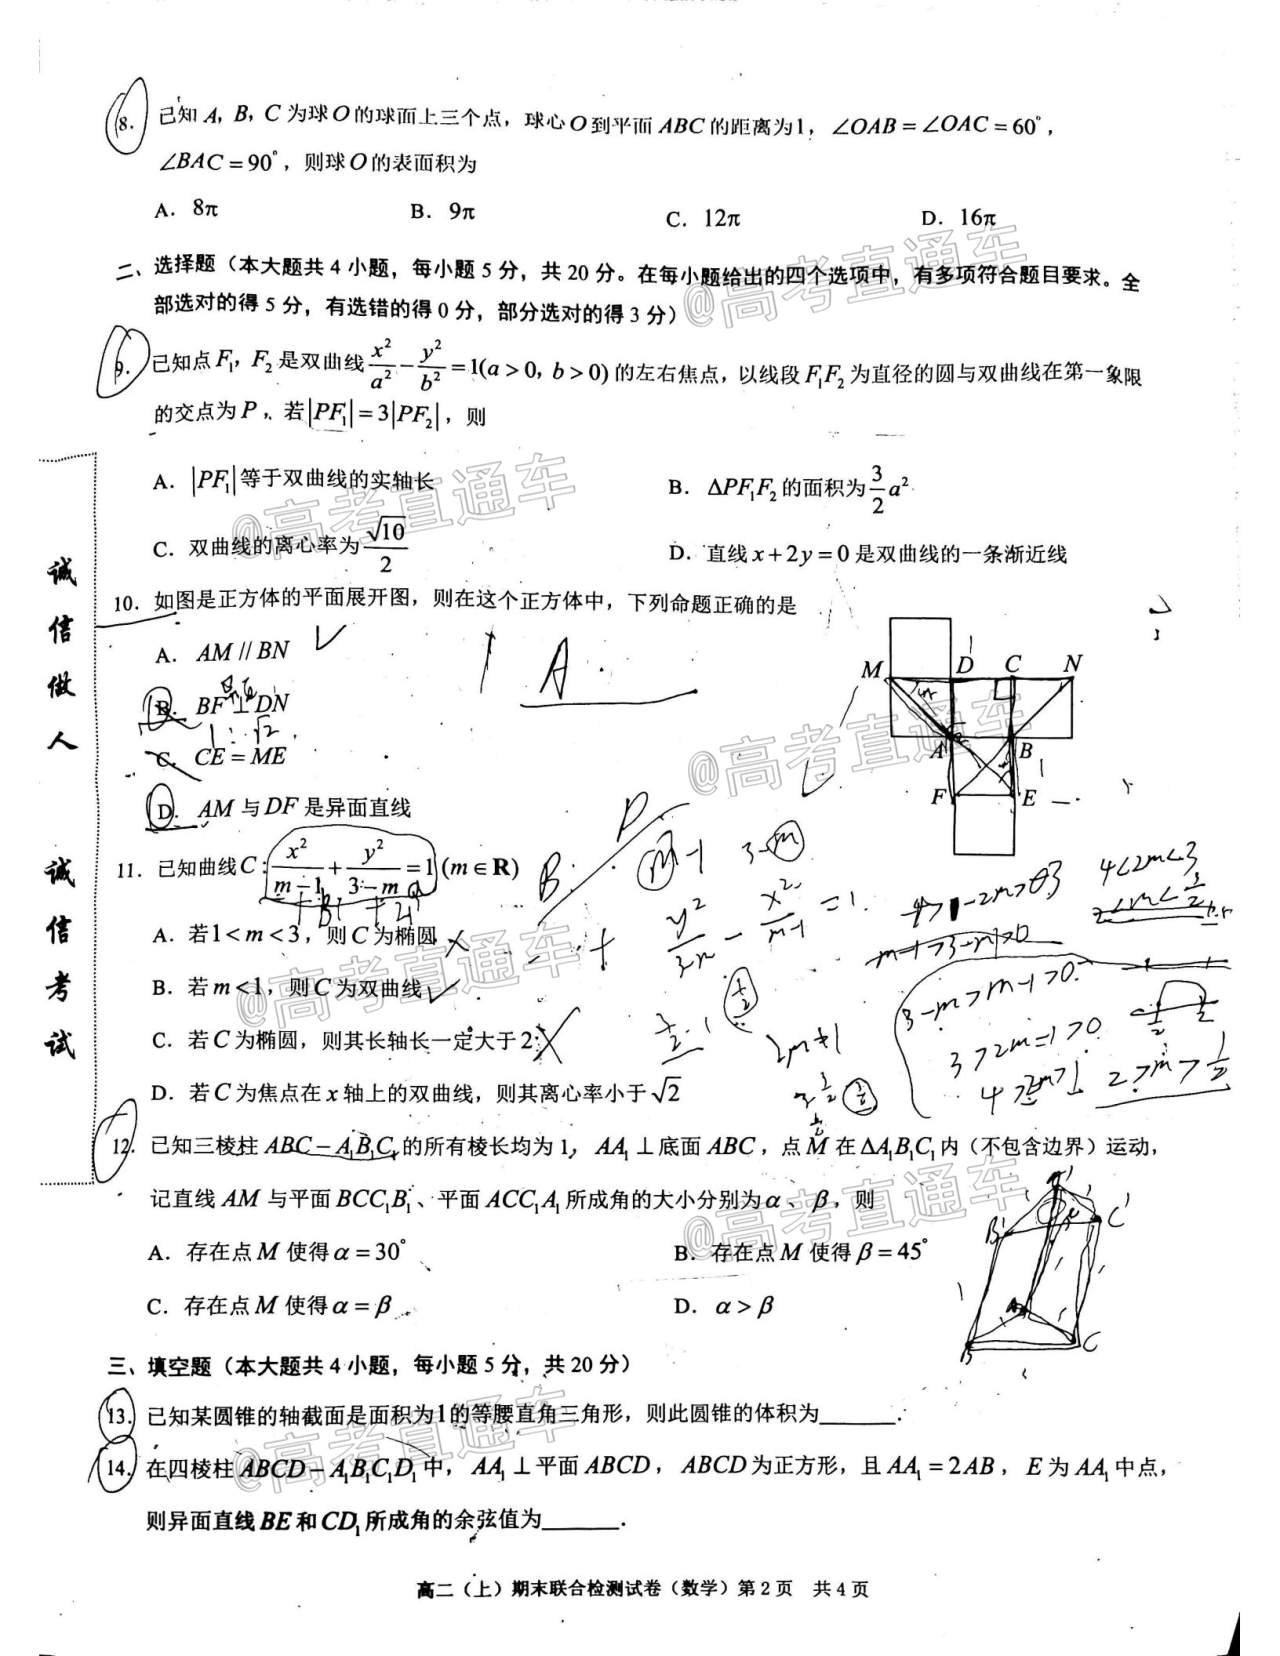 8. 已知 A, B, C 为球 O 的球面上三个点，球心 O 到平面 ABC 的距离为1，∠OAB = ∠OAC = 60°，
∠BAC = 90°，则球 O 的表面积为
A. 8π B. 9π C. 12π D. 16π
二、选择题（本大题共 4 小题，每小题 5 分，共 20 分。在每小题给出的四个选项中，有多项符合题目要求。全
部选对的得 5 分，有选错的得 0 分，部分选对的得 3 分）
@高考直通车
9. 已知点 F₁, F₂ 是双曲线 x²/a² - y²/b² = 1(a > 0, b > 0) 的左右焦点，以线段 F₁F₂ 为直径的圆与双曲线在第一象限
的交点为 P，若 |PF₁| = 3|PF₂|，则
A. |PF₁| 等于双曲线的实轴长 B. ΔPF₁F₂ 的面积为 3/2 a²
@高考直通车
C. 双曲线的离心率为 √10/2 D. 直线 x + 2y = 0 是双曲线的一条渐近线
10. 如图是正方体的平面展开图，则在这个正方体中，下列命题正确的是
A. AM // BN
B. BF ⊥ DN
1 : √2
C. CE = ME
D. AM 与 DF 是异面直线
A.
M D C N
A B
F E
@高考直通车
11. 已知曲线 C: x²/(m-1) + y²/(3-m) = 1 (m ∈ R)
A. 若 1 < m < 3，则 C 为椭圆
B. 若 m < 1，则 C 为双曲线
@高考直通车
C. 若 C 为椭圆，则其长轴长一定大于 2
D. 若 C 为焦点在 x 轴上的双曲线，则其离心率小于 √2
B. D.
m-1 3-m
y²/(3-m) - x²/(m-1) = 1.
m-1>3-m>0
3-m>m-1>0
3>2m-1>0
4>2m>1
2>m>1/2
12. 已知三棱柱 ABC - A₁B₁C₁ 的所有棱长均为 1，AA₁ ⊥ 底面 ABC，点 M 在 ΔA₁B₁C₁ 内（不包含边界）运动，
记直线 AM 与平面 BCC₁B₁、平面 ACC₁A₁ 所成角的大小分别为 α、β，则
@高考直通车
A. 存在点 M 使得 α = 30° B. 存在点 M 使得 β = 45°
C. 存在点 M 使得 α = β D. α > β
A' B' C'
A B C
三、填空题（本大题共 4 小题，每小题 5 分，共 20 分）
13. 已知某圆锥的轴截面是面积为1的等腰直角三角形，则此圆锥的体积为______.
@高考直通车
14. 在四棱柱 ABCD - A₁B₁C₁D₁ 中，AA₁ ⊥ 平面 ABCD，ABCD 为正方形，且 AA₁ = 2AB，E 为 AA₁ 中点，
则异面直线 BE 和 CD₁ 所成角的余弦值为______.
高二（上）期末联合检测试卷（数学）第 2 页 共 4 页
诚信做人 诚信考试